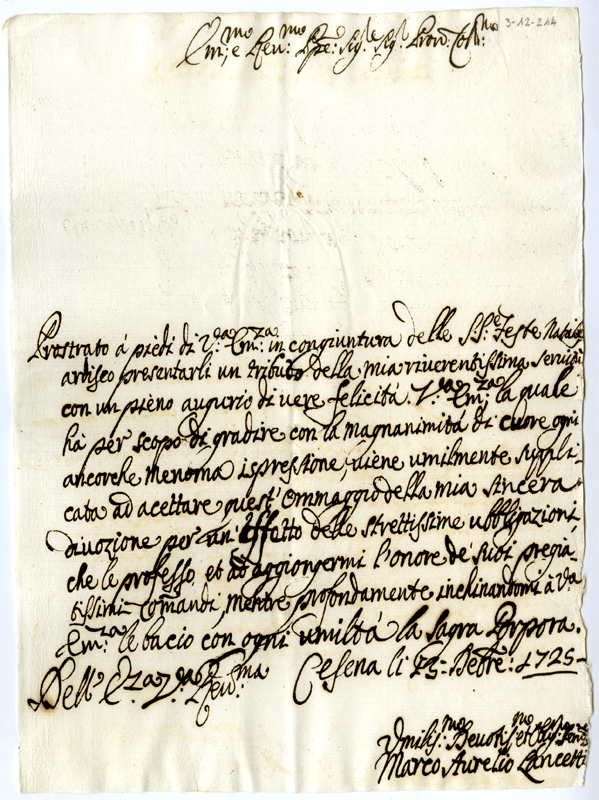 3-12-214
Em:mo e Rev:mo Sig:
Prostrato á piedi di V:ra Em:za in congiuntura delle SS:e Feste Natalizie
ardisco presentarli un tributo della mia riverentissima
con un pieno augurio di vere felicitá. V:ra Em:za la quale
há per scopo di gradire con la magnanimitá di cuore ogni
ancorche menoma ispressione, viene umilmente suppli-
cata ad acettare quest'Ommaggio della mia sincera
divozione per un'effetto delle strettissime ubbligazioni,
che le professo, et ad aggiongermi l'onore de' suoi pregia
tissimi comandi, mentre profondamente inchinandomi á V:ra
Em:za le bacio con ogni umiltá la Sagra Porpora.
Dell' E:za V:ra Rev:ma Cesena li 1725
Umiliss:mo Devotis:mo et
Marco Aurelio